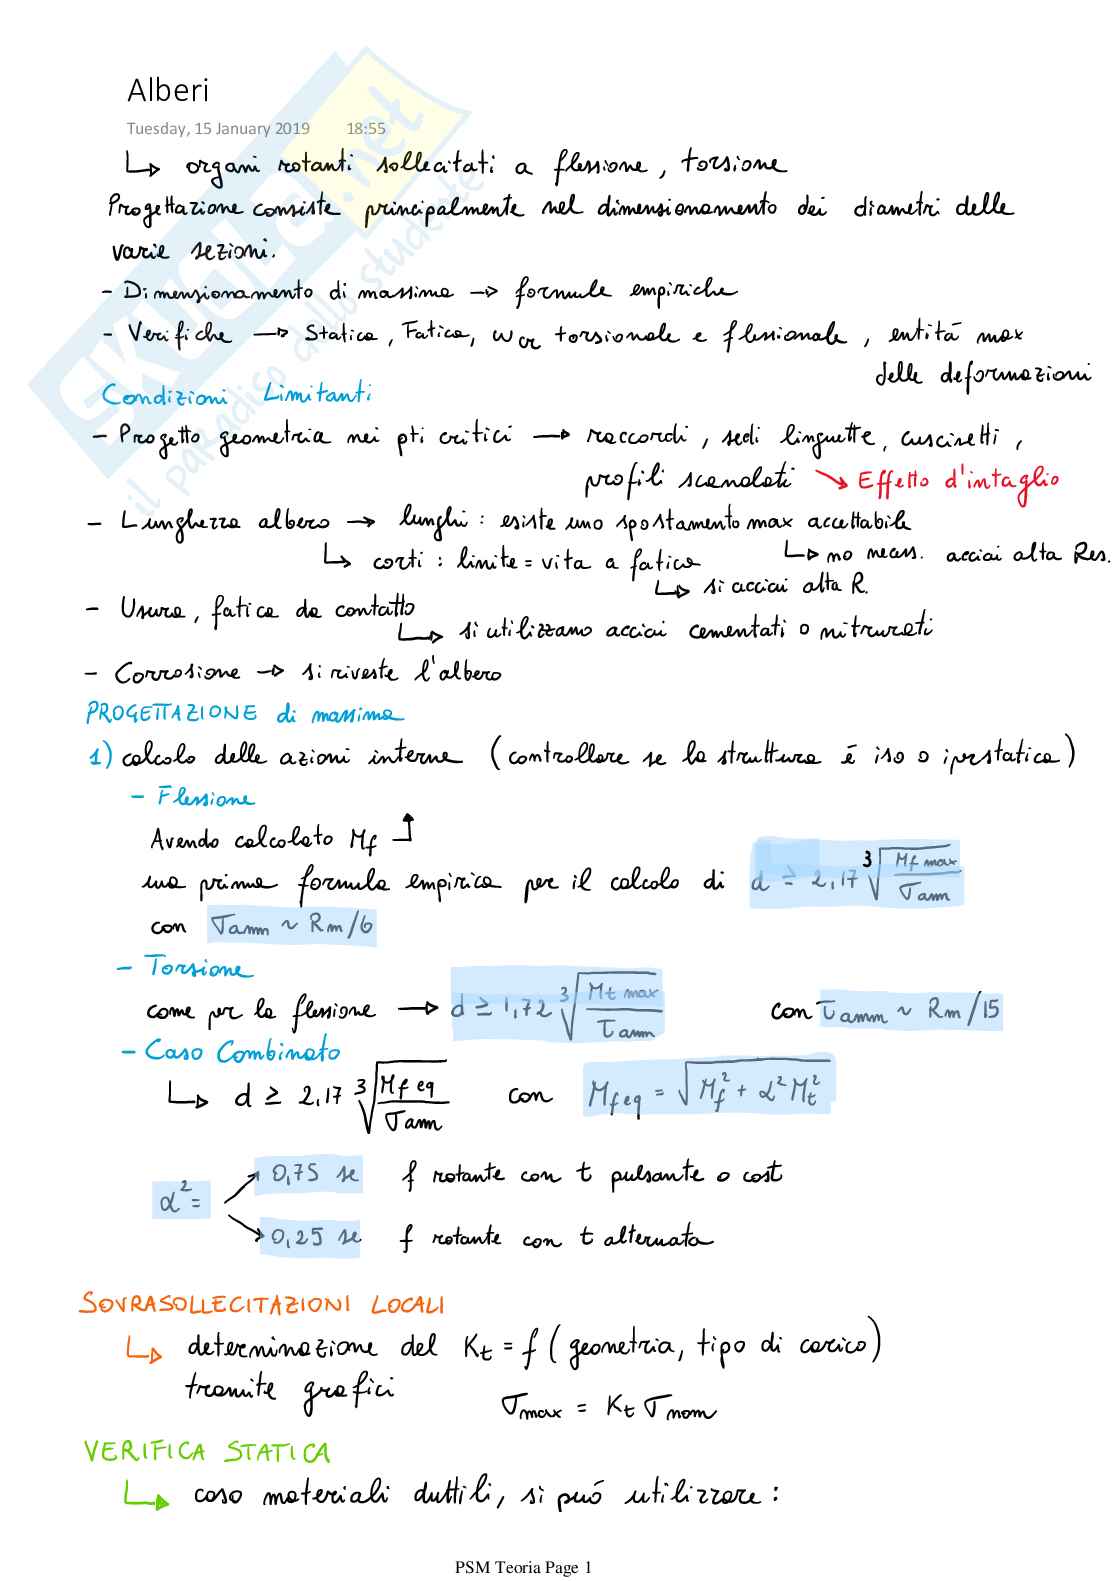 Alberi
Tuesday, 15 January 2019 18:55
↳ organi rotanti sollecitati a flessione, torsione
Progettazione consiste principalmente nel dimensionamento dei diametri delle
varie sezioni.
- Dimensionamento di massima → formule empiriche
- Verifiche → Statica, Fatica, ωcr torsionale e flessionale, entità max
delle deformazioni
Condizioni Limitanti
- Progetto geometria nei pti critici → raccordi, sedi linguette, cuscinetti,
profili scanalati ↘ Effetto d'intaglio
- Lunghezza albero → lunghi: esiste uno spostamento max accettabile
↳ corti: limite = vita a fatica ↳ no necess. acciai alta Res.
↳ si acciai alta R.
- Usura, fatica da contatto
↳ si utilizzano acciai cementati o nitrurati
- Corrosione → si riveste l'albero
PROGETTAZIONE di massima
1) calcolo delle azioni interne (controllare se la struttura é iso o iperstatica)
- Flessione
Avendo calcolato Mf ↑
una prima formula empirica per il calcolo di d ≥ 2,17 ∛(Mf max / σamm)
con σamm ~ Rm/6
- Torsione
come per la flessione → d ≥ 1,72 ∛(Mt max / τamm) con τamm ~ Rm/15
- Caso Combinato
↳ d ≥ 2,17 ∛(Mf eq / σamm) con Mfeq = √(Mf² + α² Mt²)
α² = ↗ 0,75 se f rotante con t pulsante o cost
↘ 0,25 se f rotante con t alternata
SOVRASOLLECITAZIONI LOCALI
↳ determinazione del Kt = f (geometria, tipo di carico)
tramite grafici σmax = Kt σnom
VERIFICA STATICA
↳ caso materiali duttili, si puó utilizzare:
PSM Teoria Page 1
SKUOLA.net
il paradiso dello studente